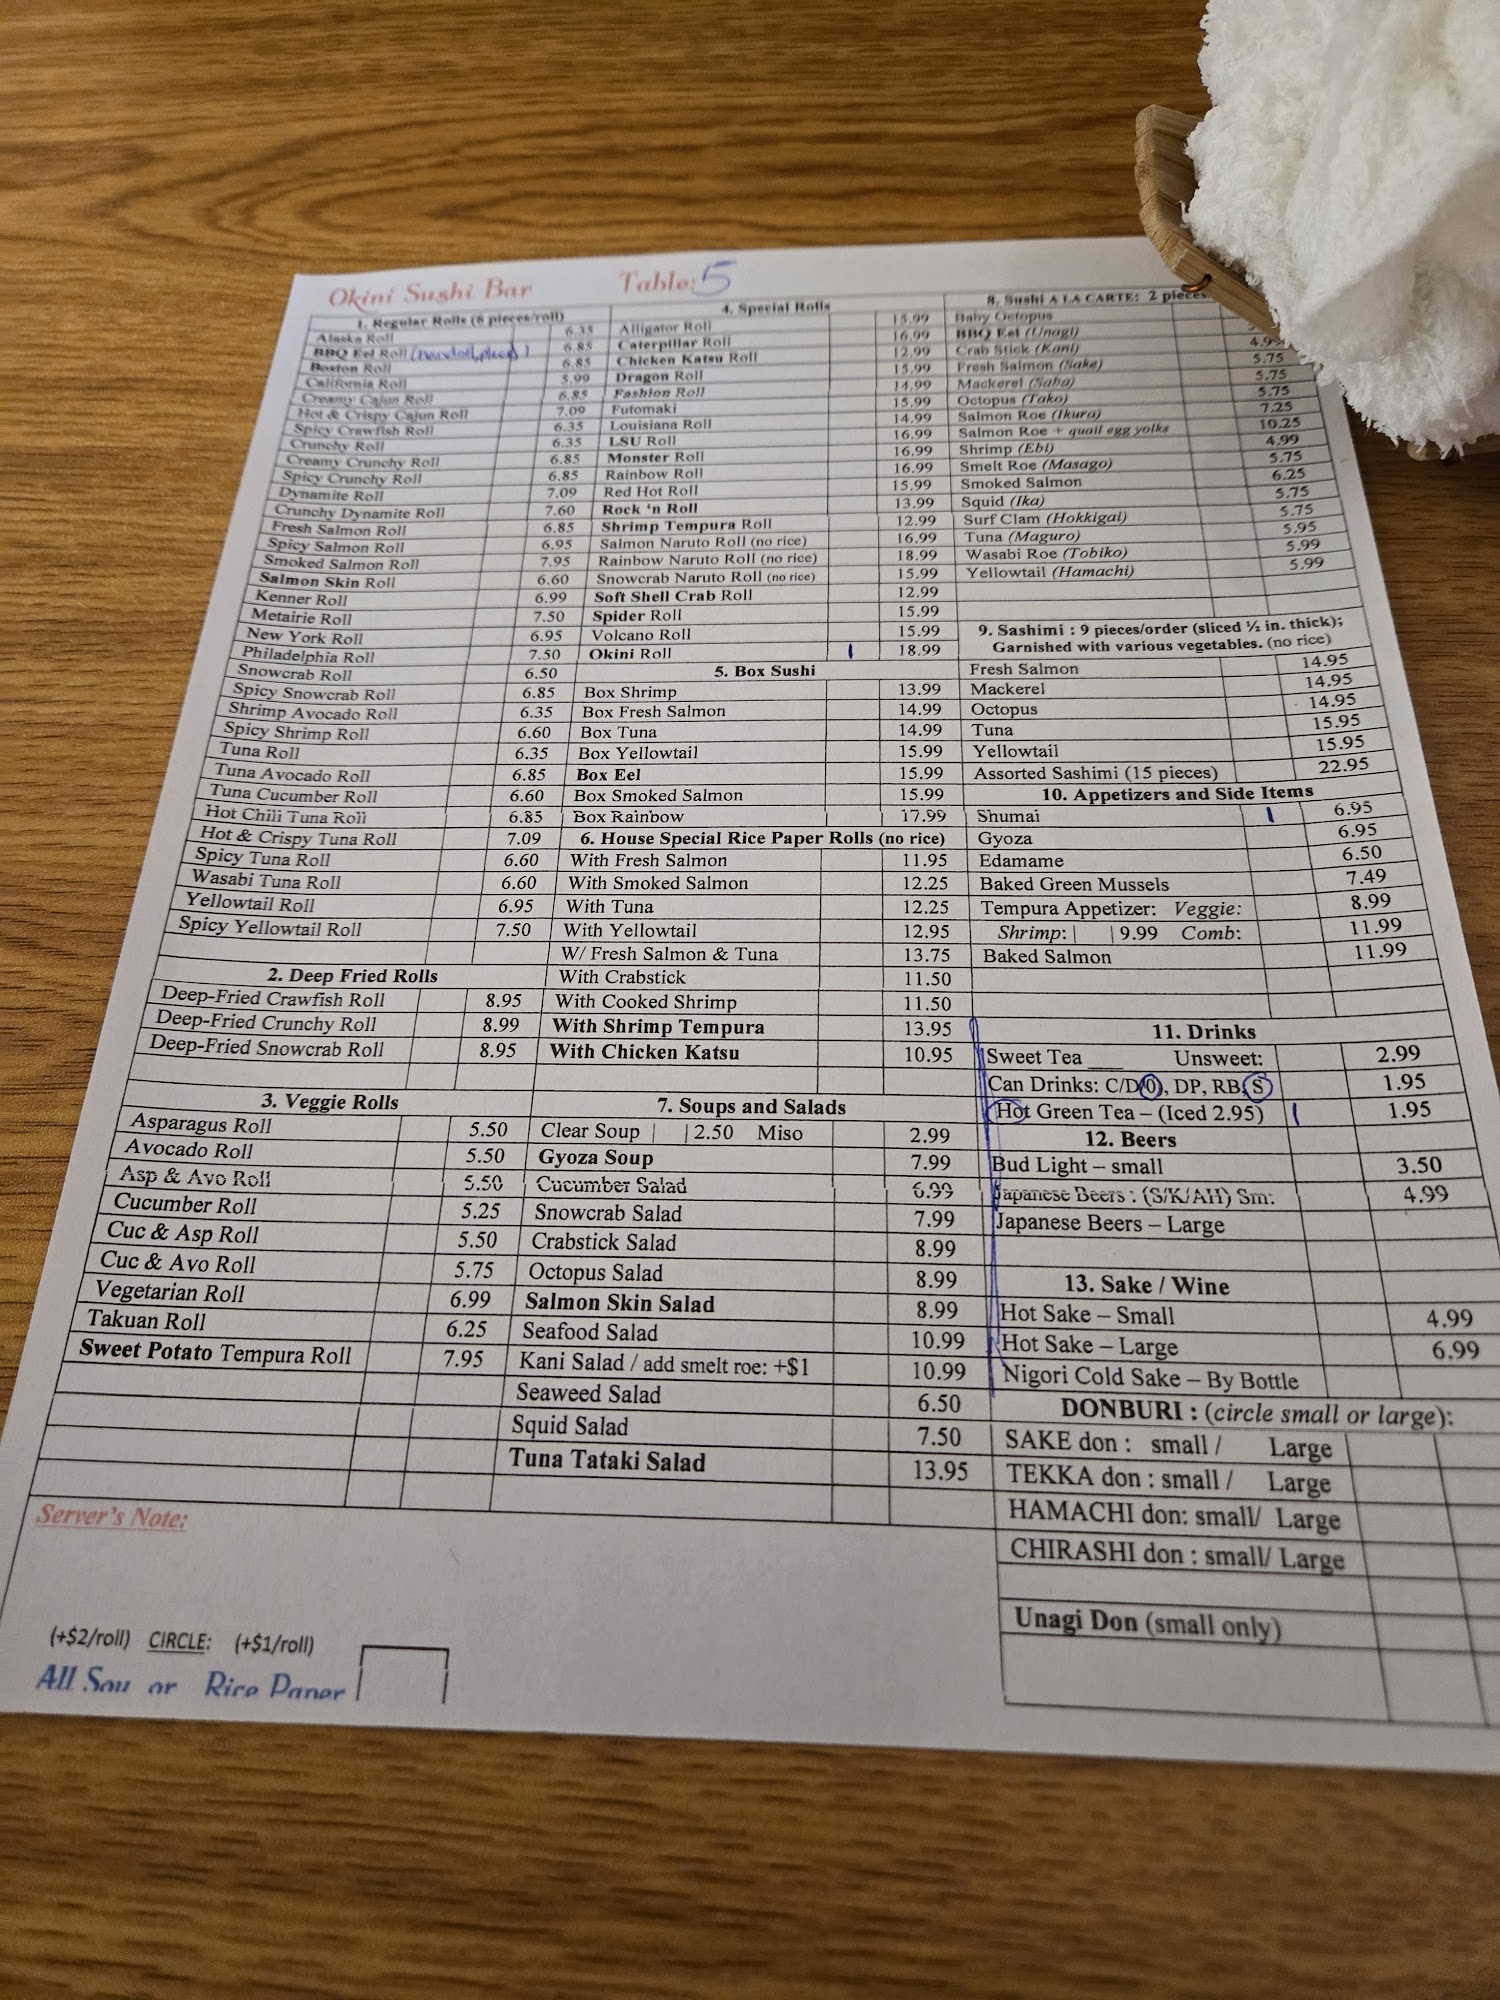 Okini Sushi Bar Table: 5
1. Regular Rolls (6 pieces/roll)
Alaska Roll 6.35
BBQ Eel Roll (handroll, please) 1 6.85
Boston Roll 6.85
California Roll 5.99
Creamy Cajun Roll 6.85
Hot & Crispy Cajun Roll 7.09
Spicy Crawfish Roll 6.35
Crunchy Roll 6.35
Creamy Crunchy Roll 6.85
Spicy Crunchy Roll 6.85
Dynamite Roll 7.09
Crunchy Dynamite Roll 7.60
Fresh Salmon Roll 6.85
Spicy Salmon Roll 6.95
Smoked Salmon Roll 7.95
Salmon Skin Roll 6.60
Kenner Roll 6.99
Metairie Roll 7.50
New York Roll 6.95
Philadelphia Roll 7.50
Snowcrab Roll 6.50
Spicy Snowcrab Roll 6.85
Shrimp Avocado Roll 6.35
Spicy Shrimp Roll 6.60
Tuna Roll 6.35
Tuna Avocado Roll 6.85
Tuna Cucumber Roll 6.60
Hot Chili Tuna Roll 6.85
Hot & Crispy Tuna Roll 7.09
Spicy Tuna Roll 6.60
Wasabi Tuna Roll 6.60
Yellowtail Roll 6.95
Spicy Yellowtail Roll 7.50
2. Deep Fried Rolls
Deep-Fried Crawfish Roll 8.95
Deep-Fried Crunchy Roll 8.99
Deep-Fried Snowcrab Roll 8.95
3. Veggie Rolls
Asparagus Roll 5.50
Avocado Roll 5.50
Asp & Avo Roll 5.50
Cucumber Roll 5.25
Cuc & Asp Roll 5.50
Cuc & Avo Roll 5.75
Vegetarian Roll 6.99
Takuan Roll 6.25
Sweet Potato Tempura Roll 7.95
4. Special Rolls
Alligator Roll 15.99
Caterpillar Roll 16.99
Chicken Katsu Roll 12.99
Dragon Roll 15.99
Fashion Roll 14.99
Futomaki 15.99
Louisiana Roll 14.99
LSU Roll 16.99
Monster Roll 16.99
Rainbow Roll 16.99
Red Hot Roll 15.99
Rock ‘n Roll 13.99
Shrimp Tempura Roll 12.99
Salmon Naruto Roll (no rice) 16.99
Rainbow Naruto Roll (no rice) 18.99
Snowcrab Naruto Roll (no rice) 15.99
Soft Shell Crab Roll 12.99
Spider Roll 15.99
Volcano Roll 15.99
Okini Roll 1 18.99
5. Box Sushi
Box Shrimp 13.99
Box Fresh Salmon 14.99
Box Tuna 14.99
Box Yellowtail 15.99
Box Eel 15.99
Box Smoked Salmon 15.99
Box Rainbow 17.99
6. House Special Rice Paper Rolls (no rice)
With Fresh Salmon 11.95
With Smoked Salmon 12.25
With Tuna 12.25
With Yellowtail 12.95
W/ Fresh Salmon & Tuna 13.75
With Crabstick 11.50
With Cooked Shrimp 11.50
With Shrimp Tempura 13.95
With Chicken Katsu 10.95
7. Soups and Salads
Clear Soup 2.50 Miso 2.99
Gyoza Soup 7.99
Cucumber Salad 6.99
Snowcrab Salad 7.99
Crabstick Salad 8.99
Octopus Salad 8.99
Salmon Skin Salad 8.99
Seafood Salad 10.99
Kani Salad / add smelt roe: +$1 10.99
Seaweed Salad 6.50
Squid Salad 7.50
Tuna Tataki Salad 13.95
8. Sushi A LA CARTE: 2 pieces
Baby Octopus
BBQ Eel (Unagi)
Crab Stick (Kani) 4.95
Fresh Salmon (Sake) 5.75
Mackerel (Saba) 5.75
Octopus (Tako) 5.75
Salmon Roe (Ikura) 7.25
Salmon Roe + quail egg yolks 10.25
Shrimp (Ebi) 4.99
Smelt Roe (Masago) 5.75
Smoked Salmon 6.25
Squid (Ika) 5.75
Surf Clam (Hokkigai) 5.75
Tuna (Maguro) 5.95
Wasabi Roe (Tobiko) 5.99
Yellowtail (Hamachi) 5.99
9. Sashimi : 9 pieces/order (sliced ½ in. thick);
Garnished with various vegetables. (no rice)
Fresh Salmon 14.95
Mackerel 14.95
Octopus 14.95
Tuna 15.95
Yellowtail 15.95
Assorted Sashimi (15 pieces) 22.95
10. Appetizers and Side Items
Shumai 1 6.95
Gyoza 6.95
Edamame 6.50
Baked Green Mussels 7.49
Tempura Appetizer: Veggie: 8.99
Shrimp: 9.99 Comb: 11.99
Baked Salmon 11.99
11. Drinks
Sweet Tea ___ Unsweet: 2.99
Can Drinks: C/D/0), DP, RB, S 1.95
Hot Green Tea – (Iced 2.95) 1 1.95
12. Beers
Bud Light – small 3.50
Japanese Beers : (S/K/AH) Sm: 4.99
Japanese Beers – Large
13. Sake / Wine
Hot Sake – Small 4.99
Hot Sake – Large 6.99
Nigori Cold Sake – By Bottle
DONBURI : (circle small or large):
SAKE don : small / Large
TEKKA don : small / Large
HAMACHI don: small/ Large
CHIRASHI don : small/ Large
Unagi Don (small only)
Server's Note:
(+$2/roll) CIRCLE: (+$1/roll)
All Soy or Rice Paper